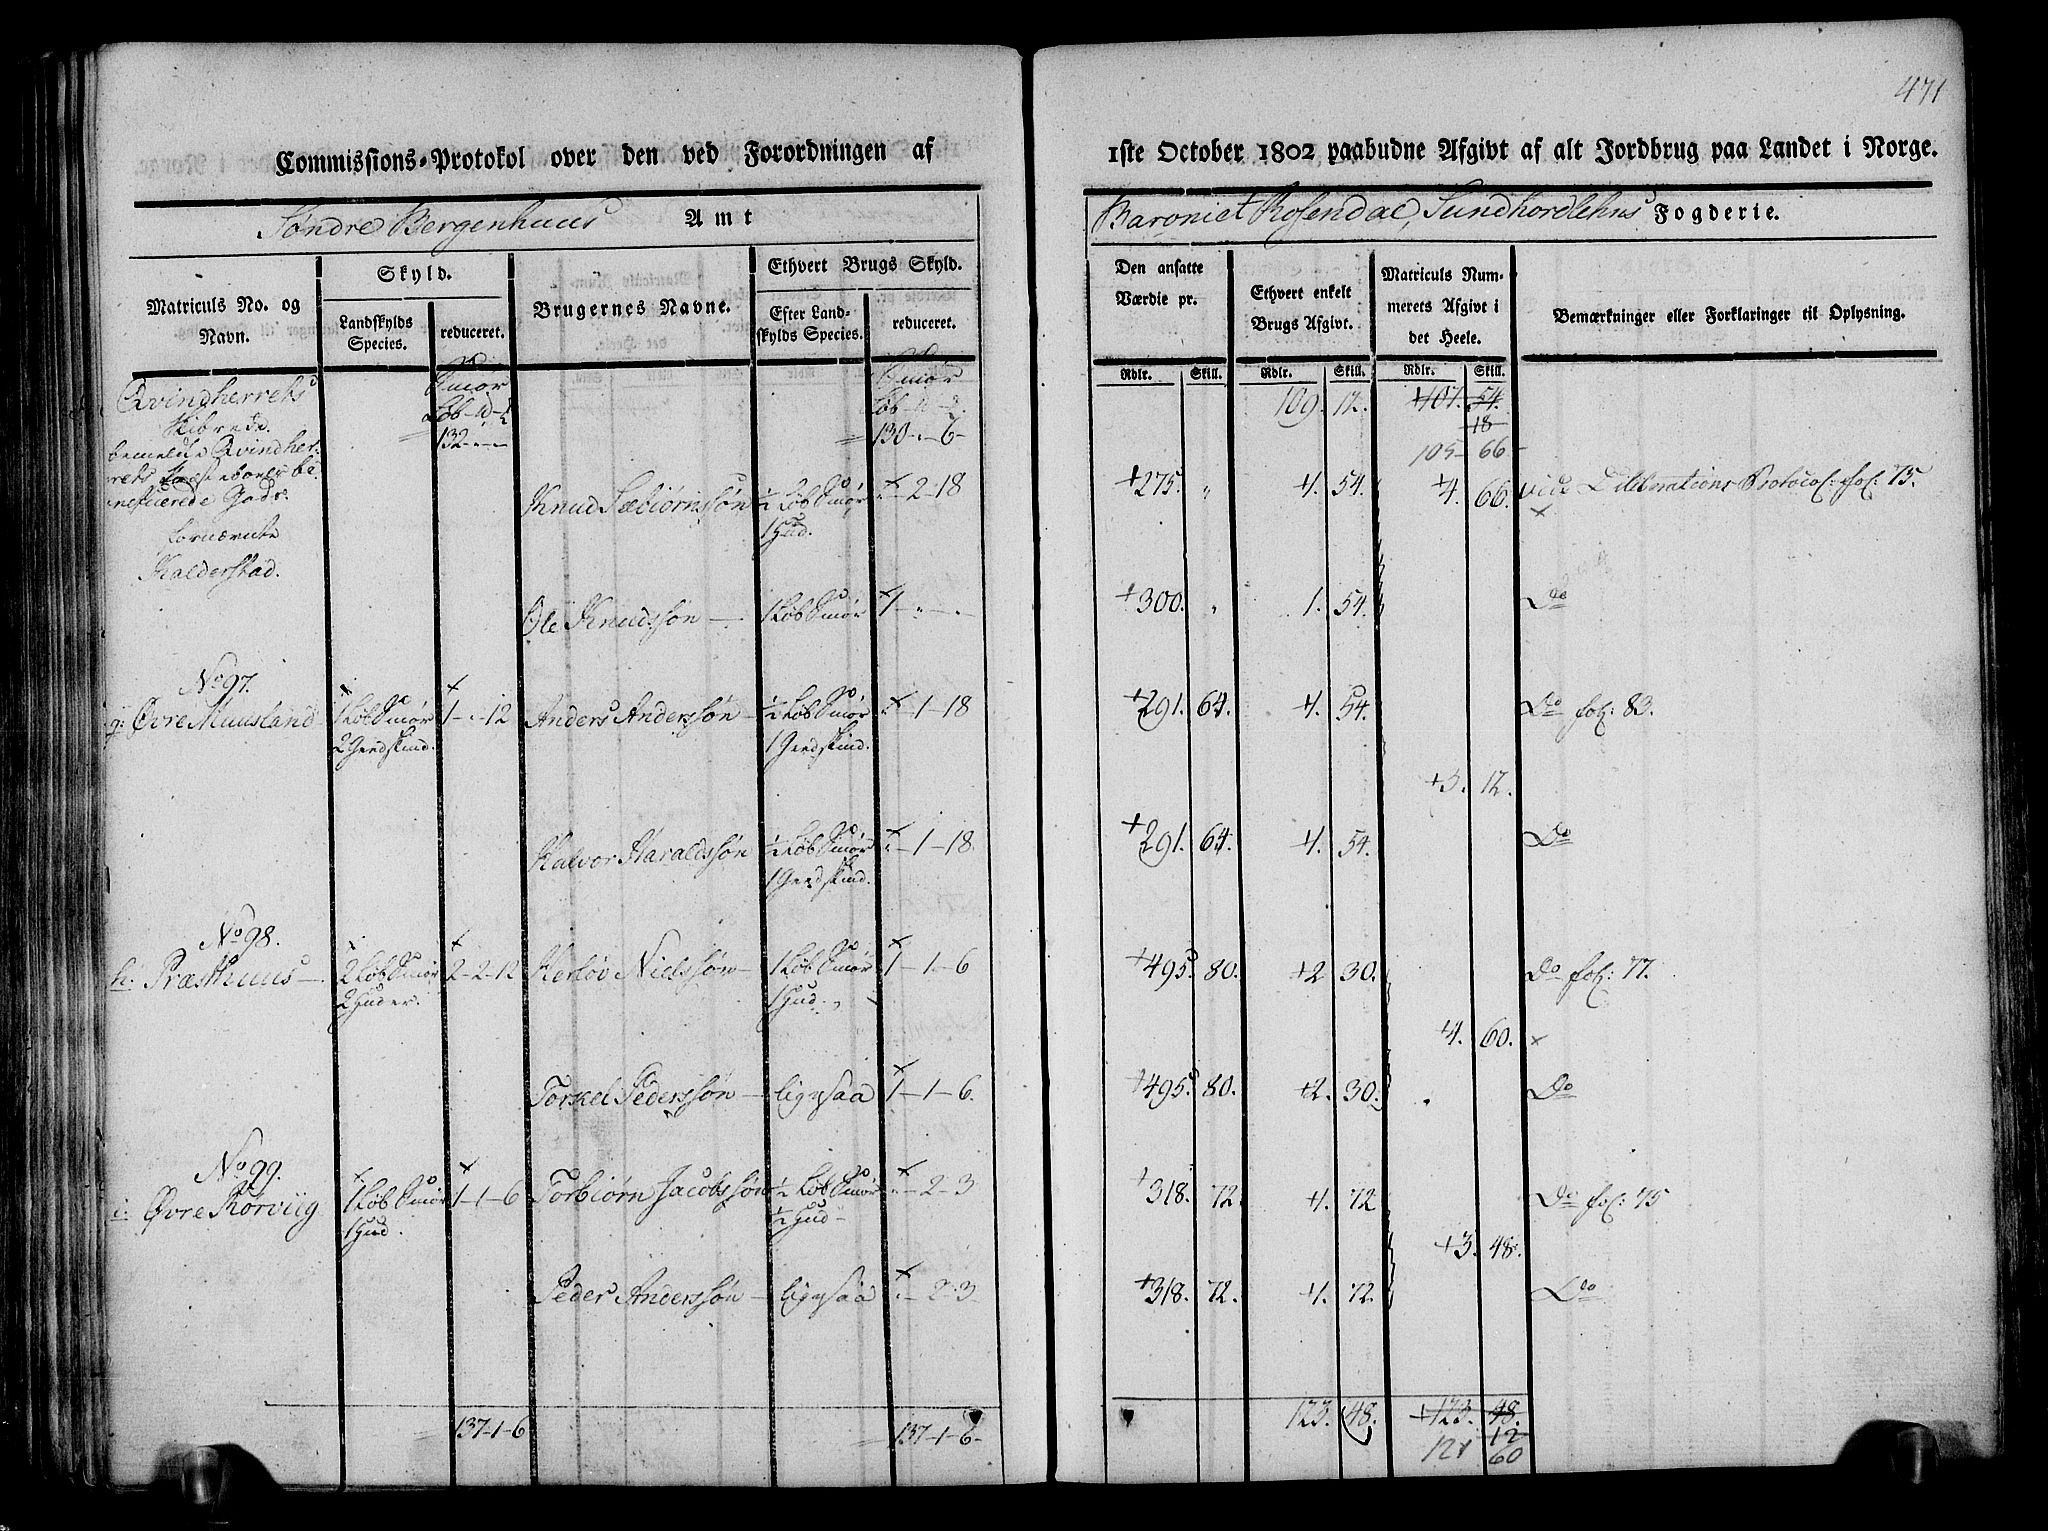 471
Commissions-Protokol over den ved Forordningen af 1ste October 1802 paabudne Afgivt af alt Jordbrug paa Landet i Norge.
Søndre Bergenhuus Amt
Baroniet Rosendal, Sundhordlehns Fogderie.
Matriculs No. og Navn.
Skyld.
Landskylds Species.
reduceret.
Brugernes Navne.
Ethvert Brugs Skyld.
Efter Landskylds Species.
reduceret.
Den ansatte Værdie pr.
Ethvert enkelt Brugs Afgivt.
Matriculs Nummerets Afgivt i det Heele.
Bemærkninger eller Forklaringer til Oplysning.
Rdlr. Skill. Rdlr. Skill. Rdlr. Skill.
Qvindherrets Smør Smør 109. 12. +107. 54.
Skibrede. Løb Løb 18
132 130-"-6- 105- 66-
bemeldte Qvindher-
rets
Gods.
fornævnte
Halderstad.
Knud Sæbiørnssøn ½ Løb Smør "-2-18 +275. " +1. 54. +4. 66. vide Deliberations Protocol: fol: 75.
1 Hud. ×
Ole Knudssøn — 1 Løb Smør 1-"-" +300. " 1. 54. Do
No 97.
g: Øvre Muusland 1 Løb Smør 1-"-12 Anders Anderssøn — ½ Løb Smør "-1-18 +291. 64. +1. 54. Do fol: 83.
2 Giedskind. 1 Giedskind.
+3. 12.
Halvor Haraldssøn ½ Løb Smør "-1-18 +291. 64. +1. 54. Do
1 Giedskind.
No 98.
h: Præsthuus — 2 Løb Smør 2-2-12 Herløv Nielssøn — 1 Løb Smør 1-1-6 +495. 80. +2 30. Do fol: 77.
2 Huder. 1 Hud.
+4. 60. ×
Torkel Pederssøn — ligesaa 1-1-6. +495. 80. +2. 30. Do
No 99.
i: Øvre Rørviig 1 Løb Smør 1-1-6 Torbiørn Jacobssøn ½ Løb Smør "-2-3 +318. 72. +1. 72 Do fol: 75
1 Hud. ½ Hud-
+3. 48.
Peder Anderssøn — ligesaa "-2-3 +318. 72. +1. 72. Do
137-1-6 137-1-6- 123. 48. +123. 48.
12
121 60